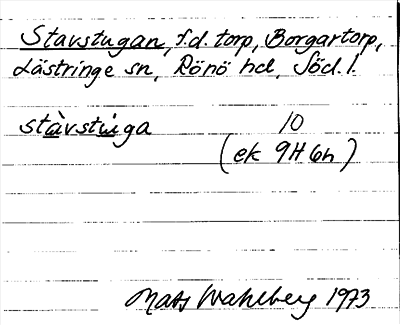 Stavstugan, f.d. torp, Borgartorp,
Lästringe sn, Rönö hd, Söd. l.
stàvstùga 10
(ek 9H 6h)
Mats Wahlberg 1973